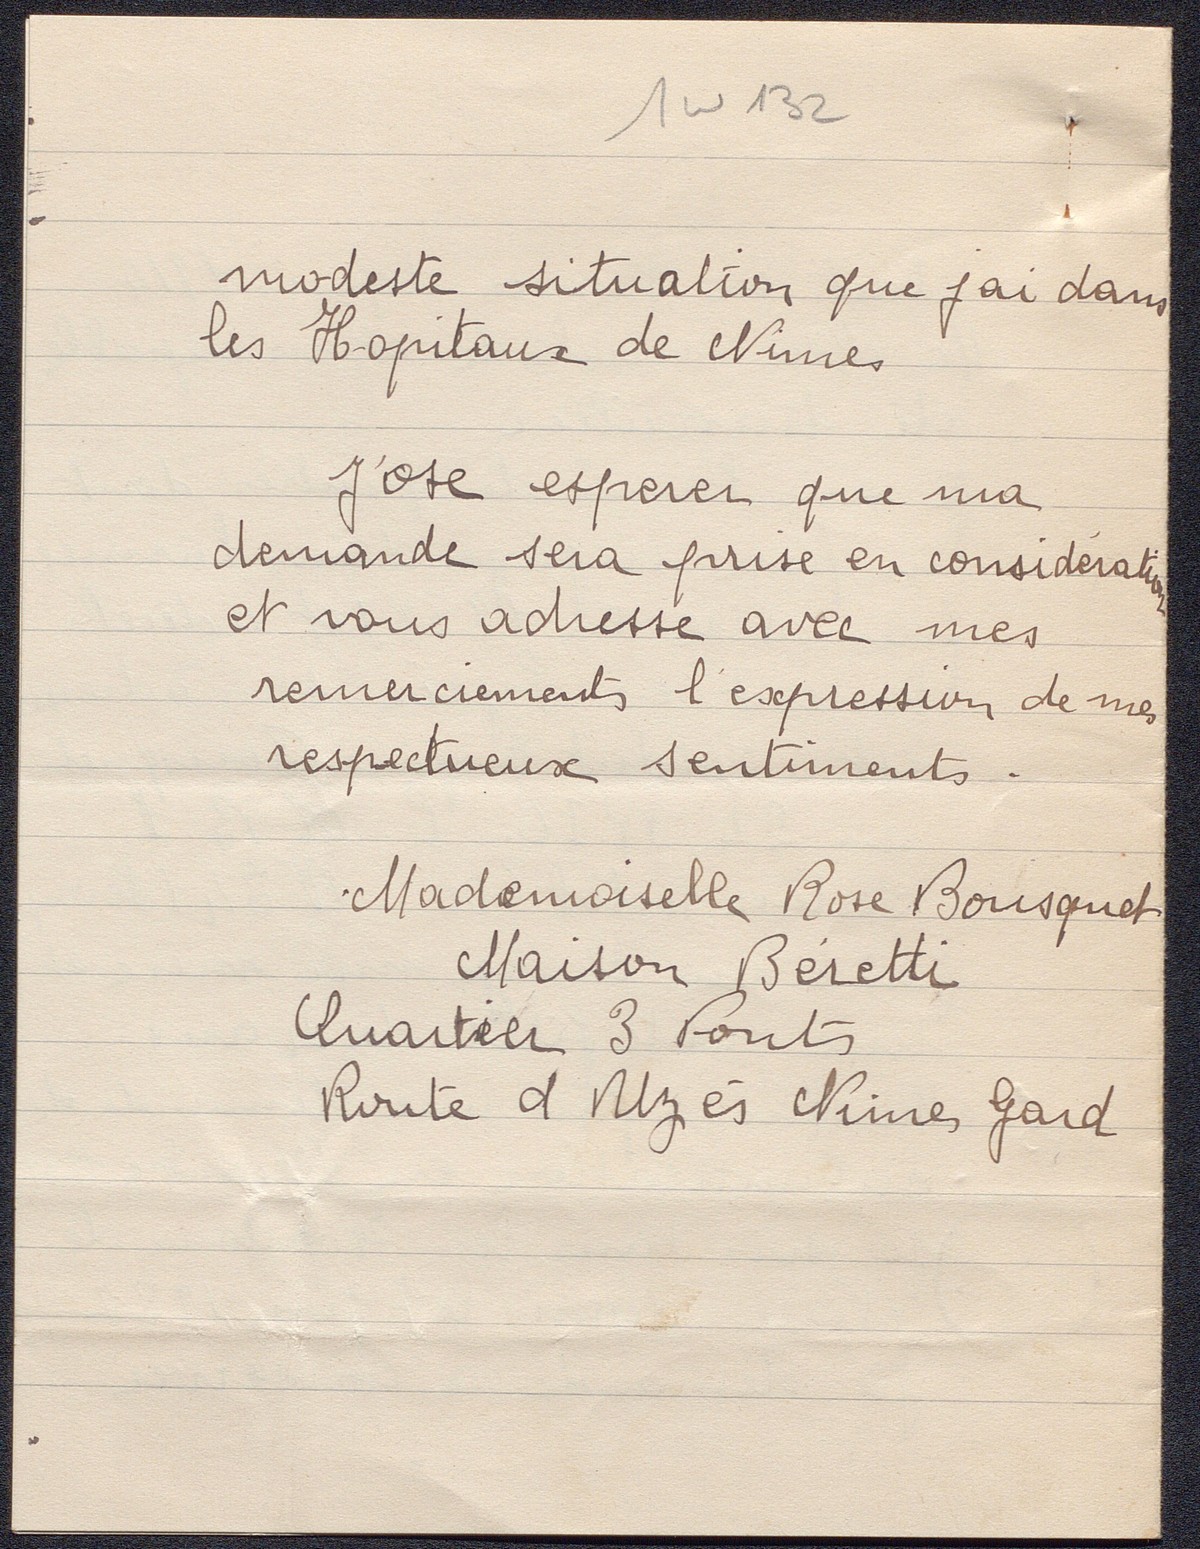 1 W 132
modeste situation que jai dans
les Hopitaux de Nimes
J'ose esperer que ma
demande sera prise en considération
et vous adresse avec mes
remerciements l'expression de mes
respectueux sentiments.
Mademoiselle Rose Bousquet
Maison Béretti
Quartier 3 Ponts
Route d Uzès Nimes Gard